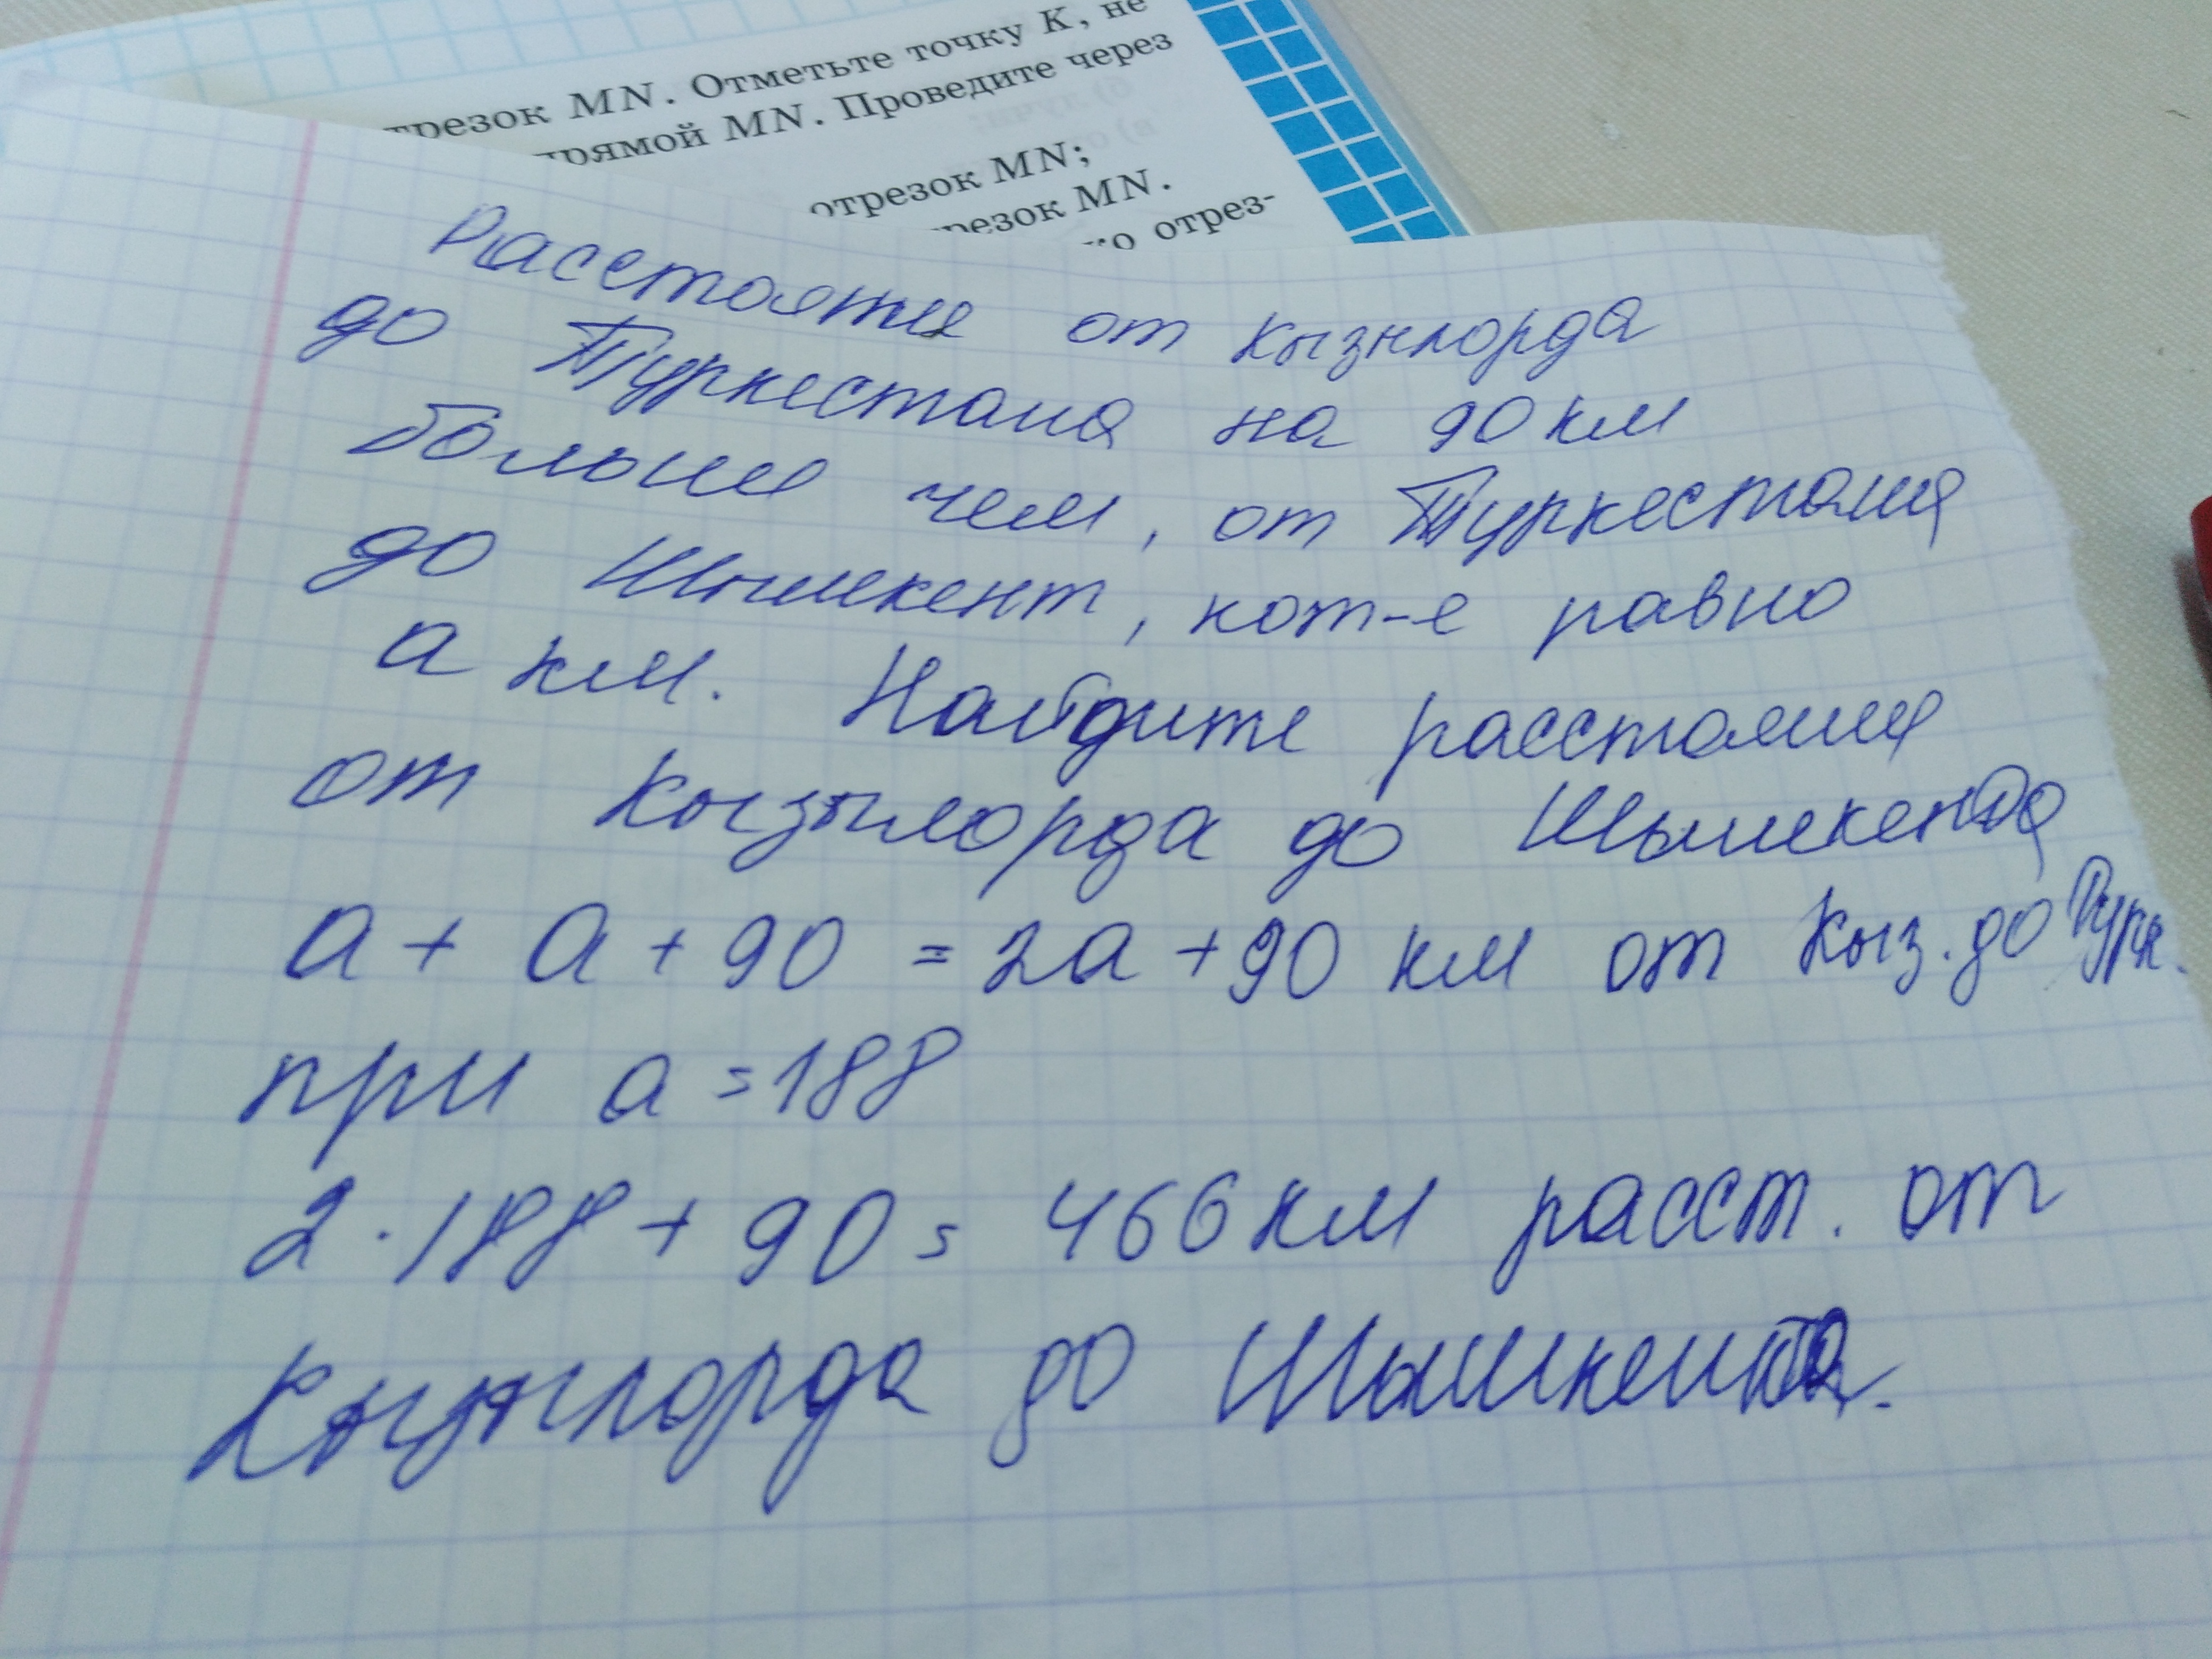 трезок MN. Отметьте точку К, не
прямой MN. Проведите через
отрезок MN;
резок MN.
ко отрез-
Расстояние от Кызылорда
до Туркестана на 90 км
больше чем, от Туркестана
до Шымкент, кот-е равно
а км. Найдите расстояние
от Кызылорда до Шымкента
а + а + 90 = 2а + 90 км от Кыз. до Турк.
при а = 188
2 · 188 + 90 = 466 км расст. от
Кызылорда до Шымкента.